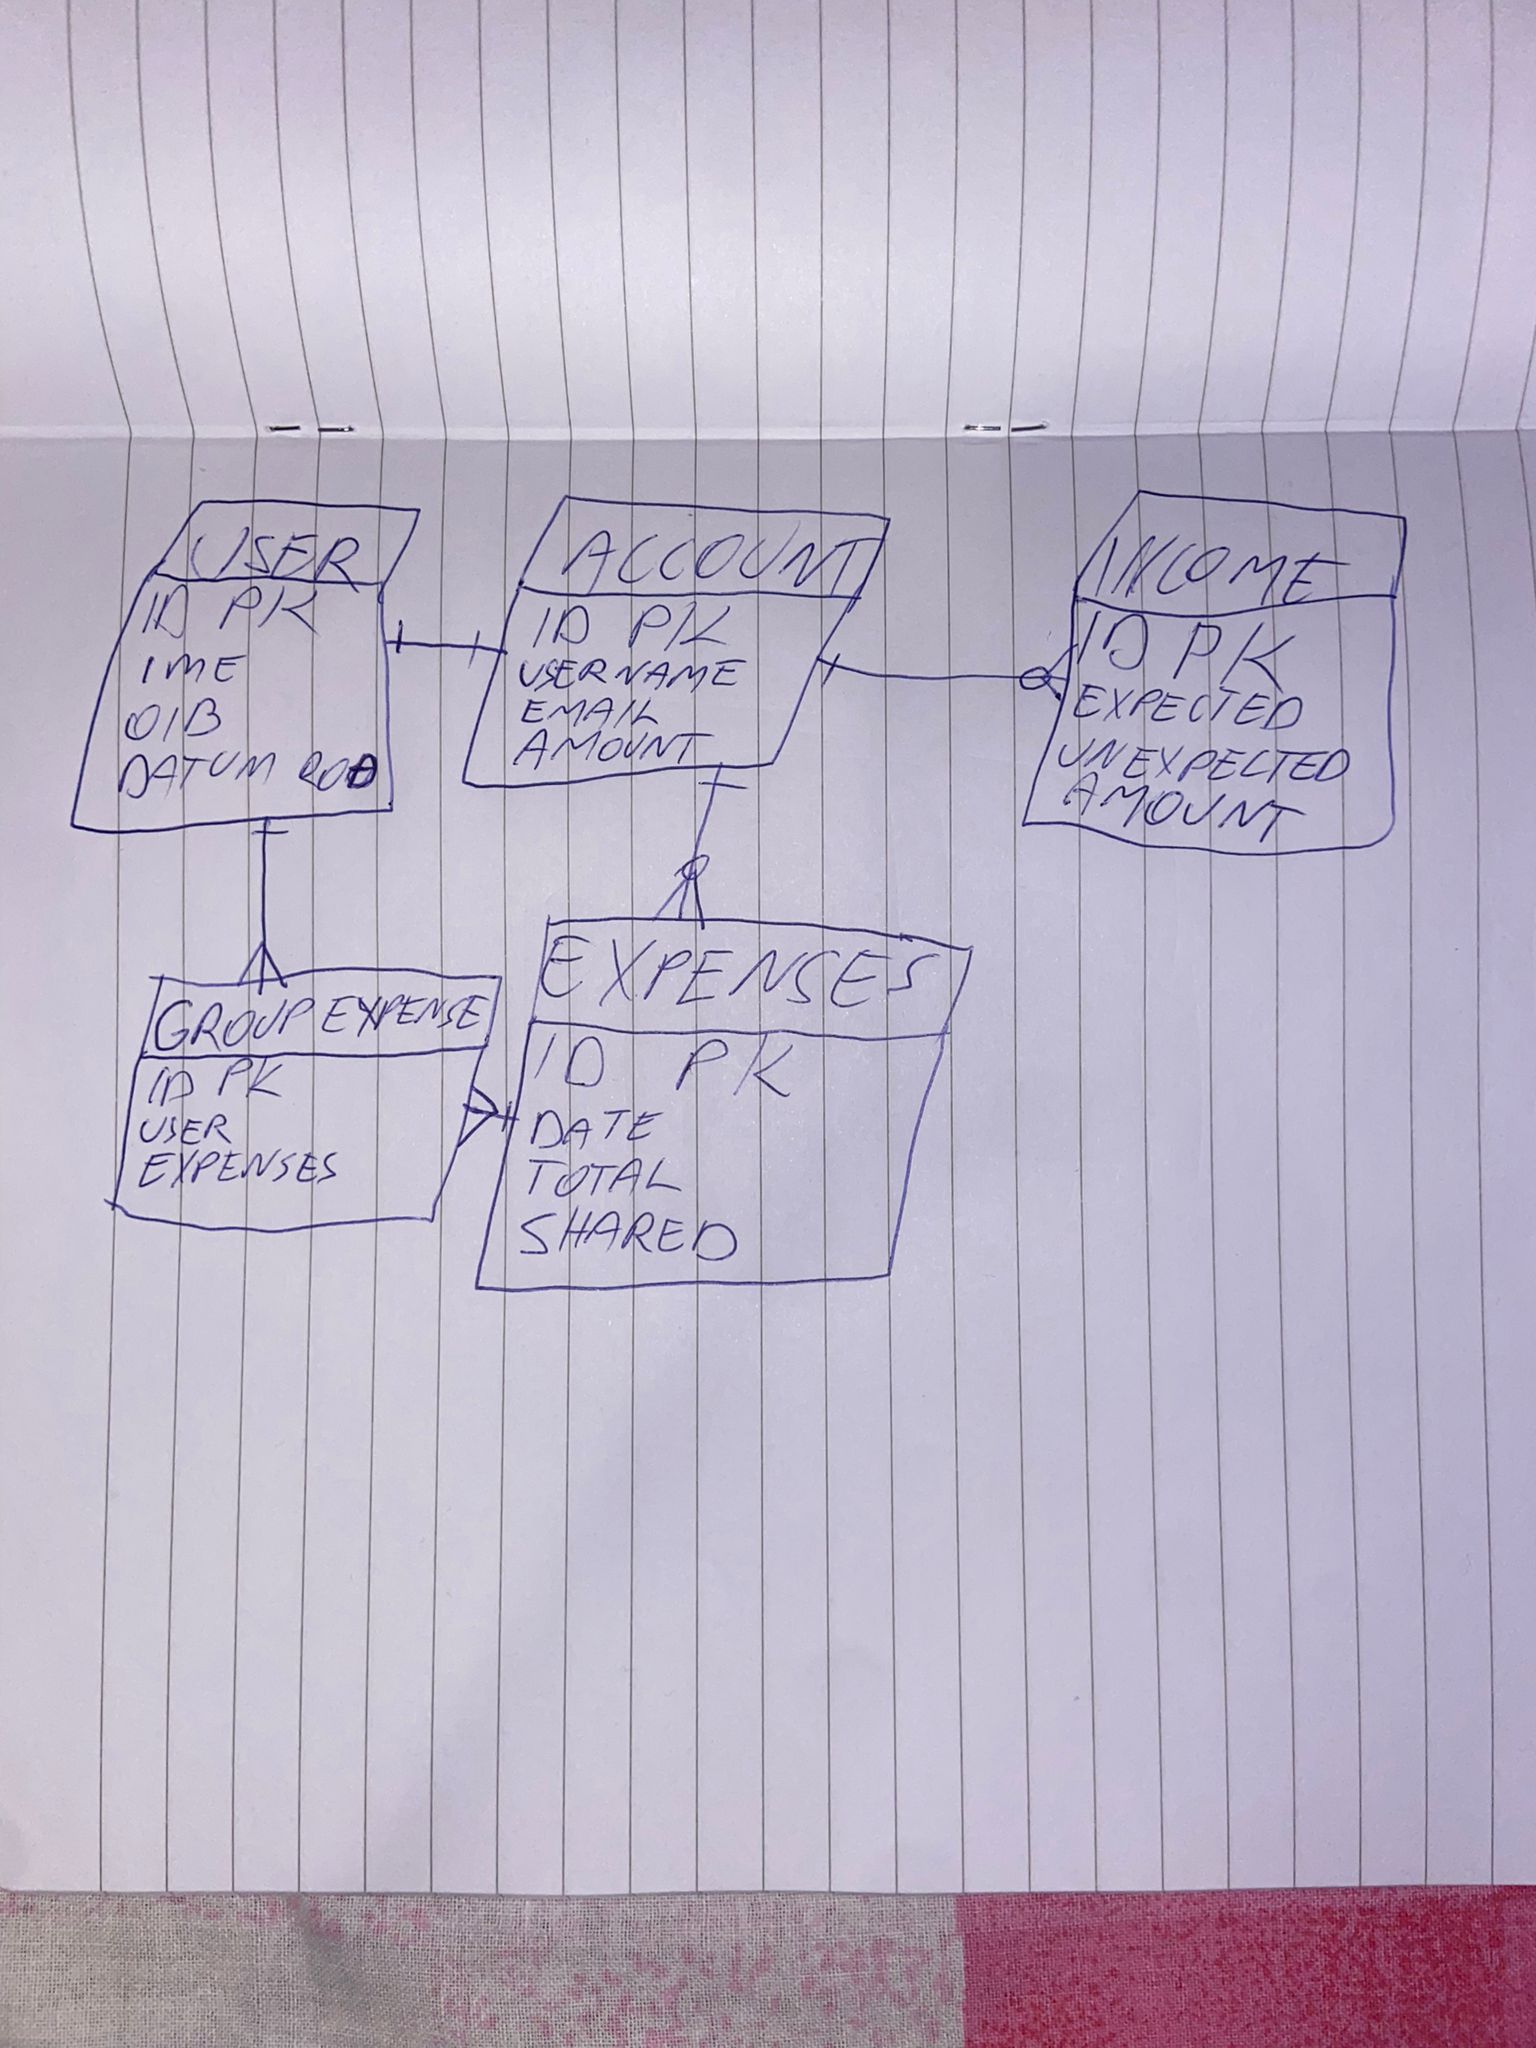 USER
ID PK
IME
OIB
DATUM ROĐ
ACCOUNT
ID PK
USERNAME
EMAIL
AMOUNT
INCOME
ID PK
EXPECTED
UNEXPECTED
AMOUNT
GROUP EXPENSE
ID PK
USER
EXPENSES
EXPENSES
ID PK
DATE
TOTAL
SHARED